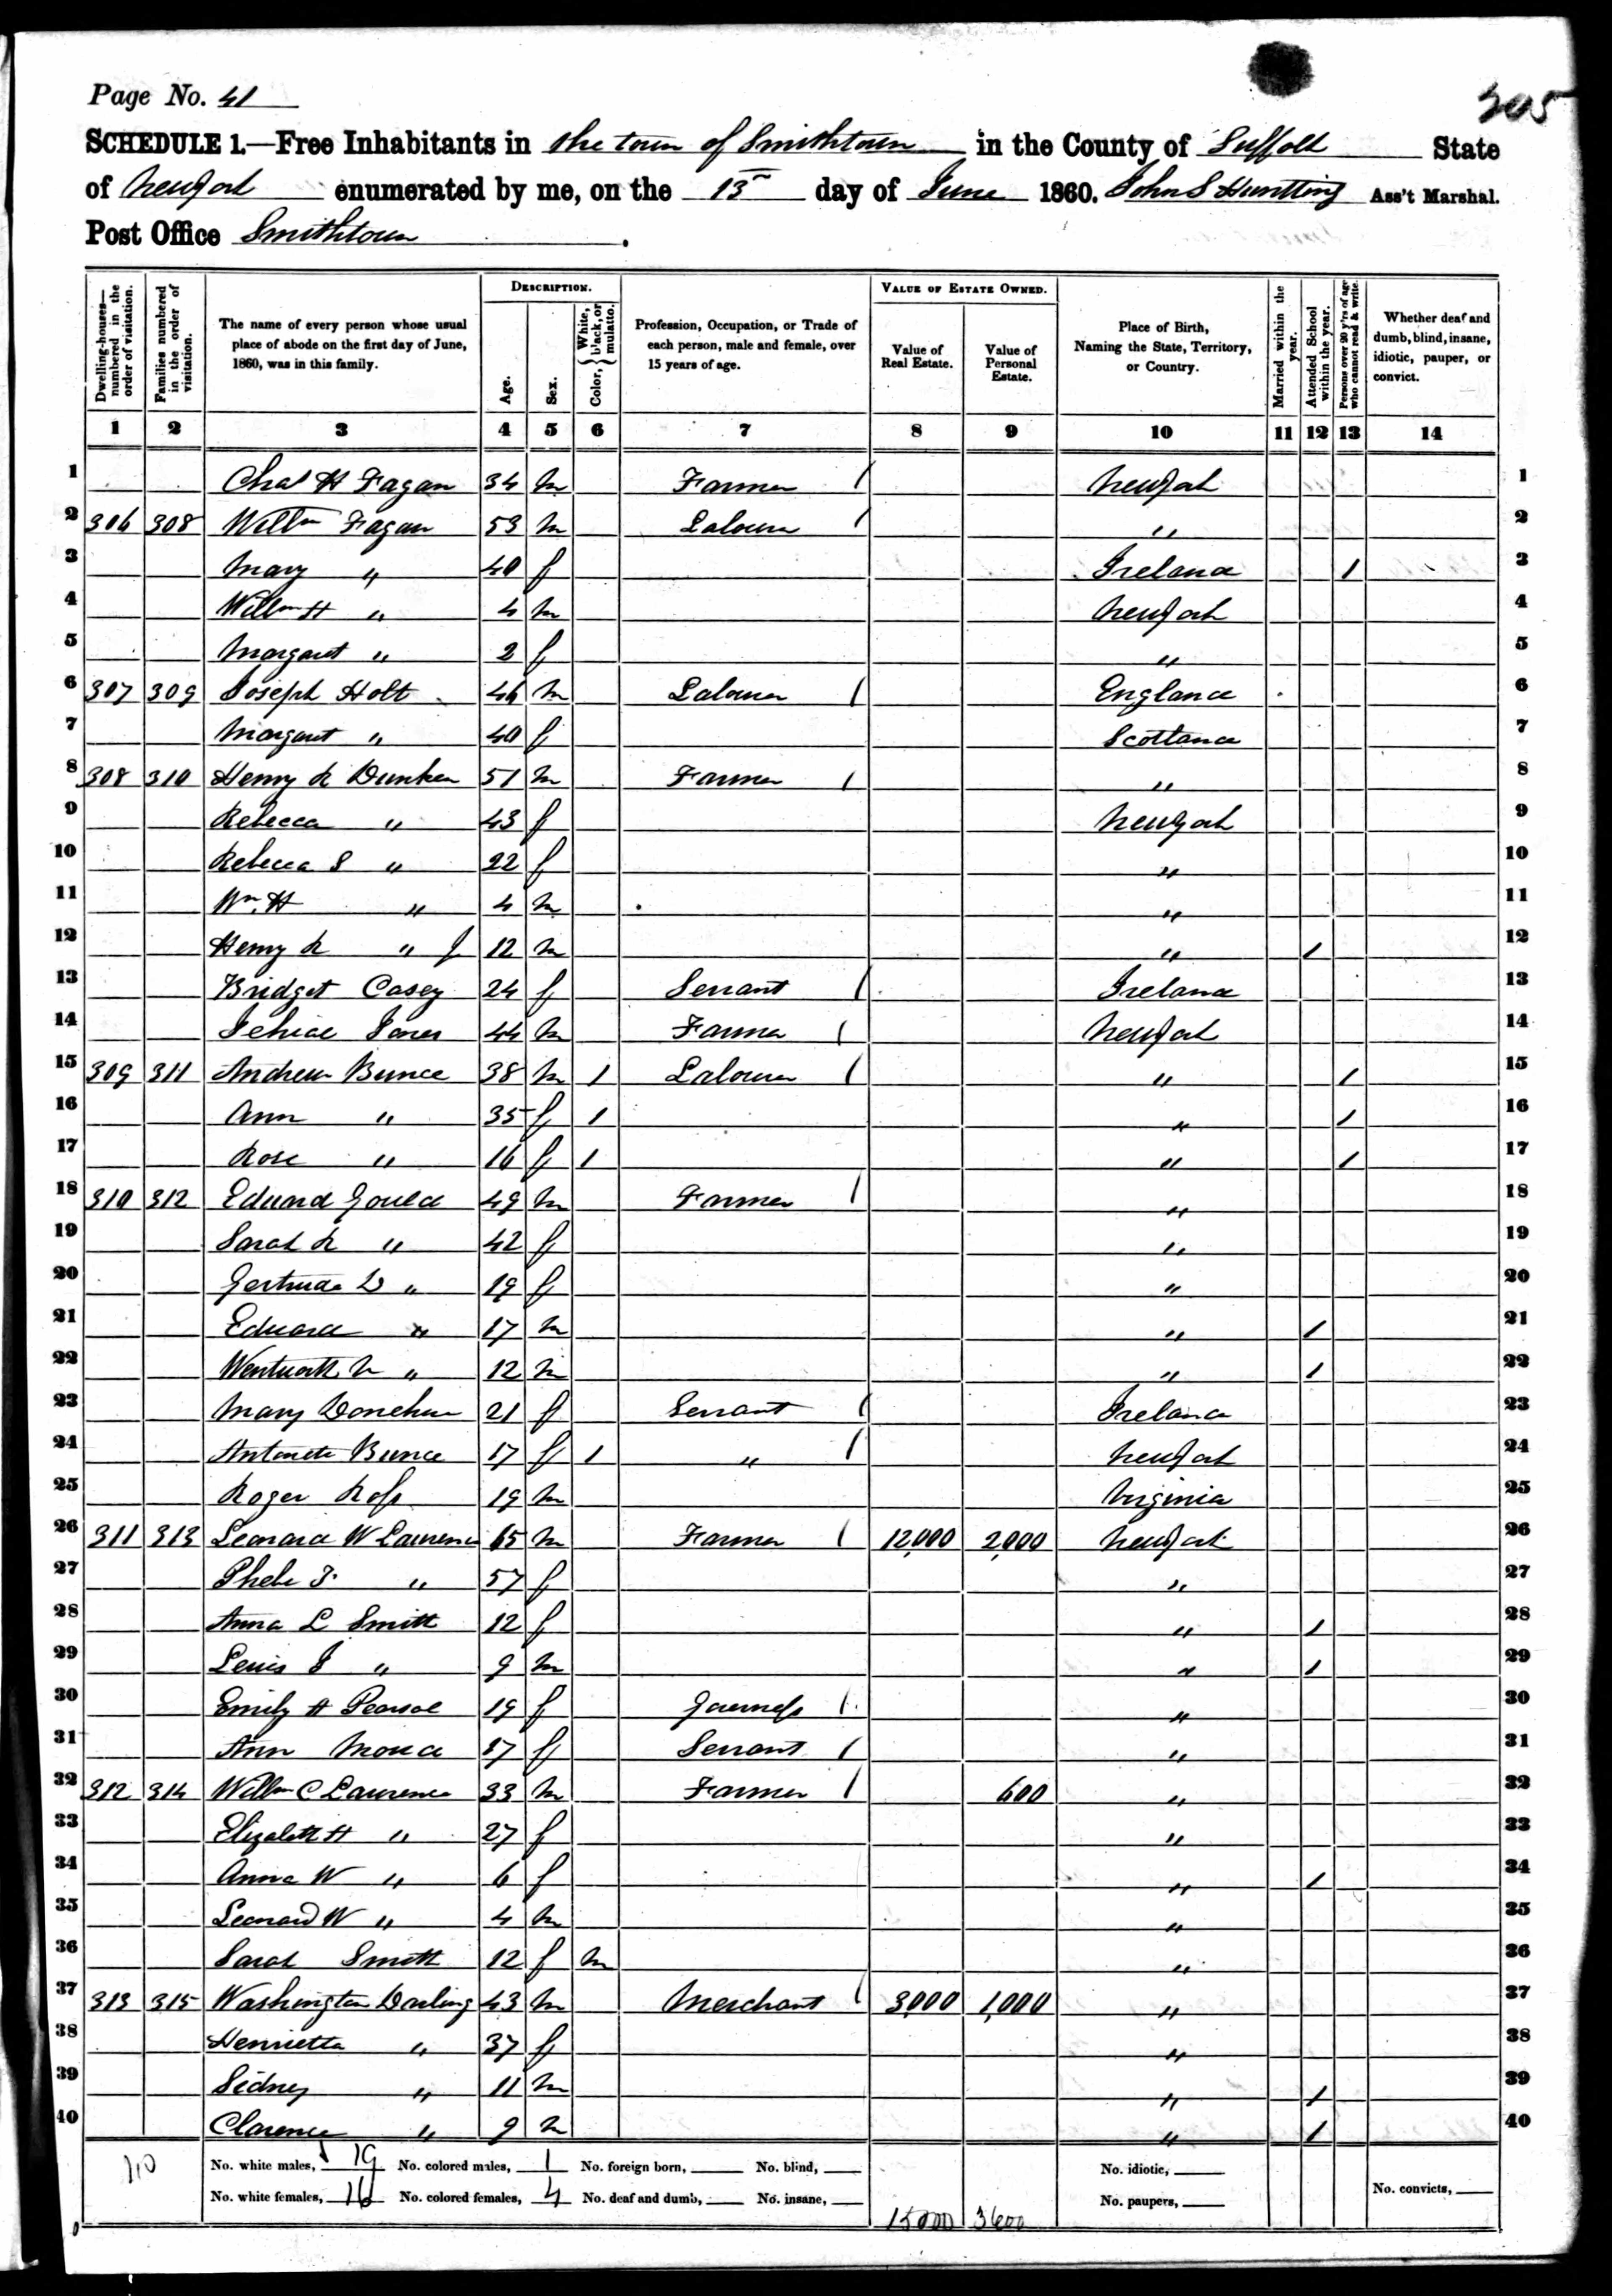 Page No. 41
305
SCHEDULE 1.—Free Inhabitants in the town of Smithtown in the County of Suffolk State
of New York enumerated by me, on the 13 day of June 1860. John S Huntting Ass't Marshal.
Post Office Smithtown.
Dwelling-houses—numbered in the order of visitation.
Families numbered in the order of visitation.
The name of every person whose usual place of abode on the first day of June, 1860, was in this family.
DESCRIPTION.
Age.
Sex.
Color, { White, black, or mulatto.
Profession, Occupation, or Trade of each person, male and female, over 15 years of age.
VALUE OF ESTATE OWNED.
Value of Real Estate.
Value of Personal Estate.
Place of Birth, Naming the State, Territory, or Country.
Married within the year.
Attended School within the year.
Persons over 20 y'rs of age who cannot read & write.
Whether deaf and dumb, blind, insane, idiotic, pauper, or convict.
1 2 3 4 5 6 7 8 9 10 11 12 13 14
1 Chas H Fagan 34 m Farmer / New York 1
2 306 308 Willm Fagan 53 m Laborer / " 2
3 Mary " 40 f Ireland / 3
4 Willm H " 4 m New York 4
5 Margaret " 2 f " 5
6 307 309 Joseph Holt 46 m Laborer / England 6
7 Margaret " 40 f Scotland 7
8 308 310 Henry R Dunken 51 m Farmer / " 8
9 Rebecca " 43 f New York 9
10 Rebecca S " 22 f " 10
11 Wm. H " 4 m " 11
12 Henry R " J 12 m " / 12
13 Bridget Casey 24 f Servant / Ireland 13
14 Jones 44 m Farmer / New York 14
15 309 311 Andrew Bunce 38 m 1 Laborer / " / 15
16 Ann " 35 f 1 " / 16
17 Rose " 16 f 1 " / 17
18 310 312 Edward Gould 49 m Farmer / " 18
19 Sarah R " 42 f " 19
20 Gertrude D " 19 f " 20
21 Edward " 17 m " / 21
22 Wentworth " 12 m " / 22
23 Mary Donehue 21 f Servant / Ireland 23
24 Antonete Bunce 17 f 1 " / New York 24
25 Roger Ross 19 m Virginia 25
26 311 313 Leonard W Lawrence 65 m Farmer / 12,000 2,000 New York 26
27 Phebe T. " 57 f " 27
28 Anna L Smith 12 f " / 28
29 Lewis S " 9 m " / 29
30 Emily H Pearsal 19 f Governess / " 30
31 Ann 17 f Servant / " 31
32 312 314 Willm C Lawrence 33 m Farmer / 600 " 32
33 Elizabeth H " 27 f " 33
34 Anna W " 6 f " / 34
35 Leonard W " 4 m " 35
36 Sarah Smith 12 f m " 36
37 313 315 Washington Darling 43 m Merchant / 3,000 1,000 " 37
38 Henrietta " 37 f " 38
39 Sidney " 11 m " / 39
40 Clarence " 9 m " / 40
No. white males, 19 No. colored males, 1 No. foreign born, No. blind, No. idiotic,
No. white females, 16 No. colored females, 4 No. deaf and dumb, No. insane, No. paupers, No. convicts,
15000 3600